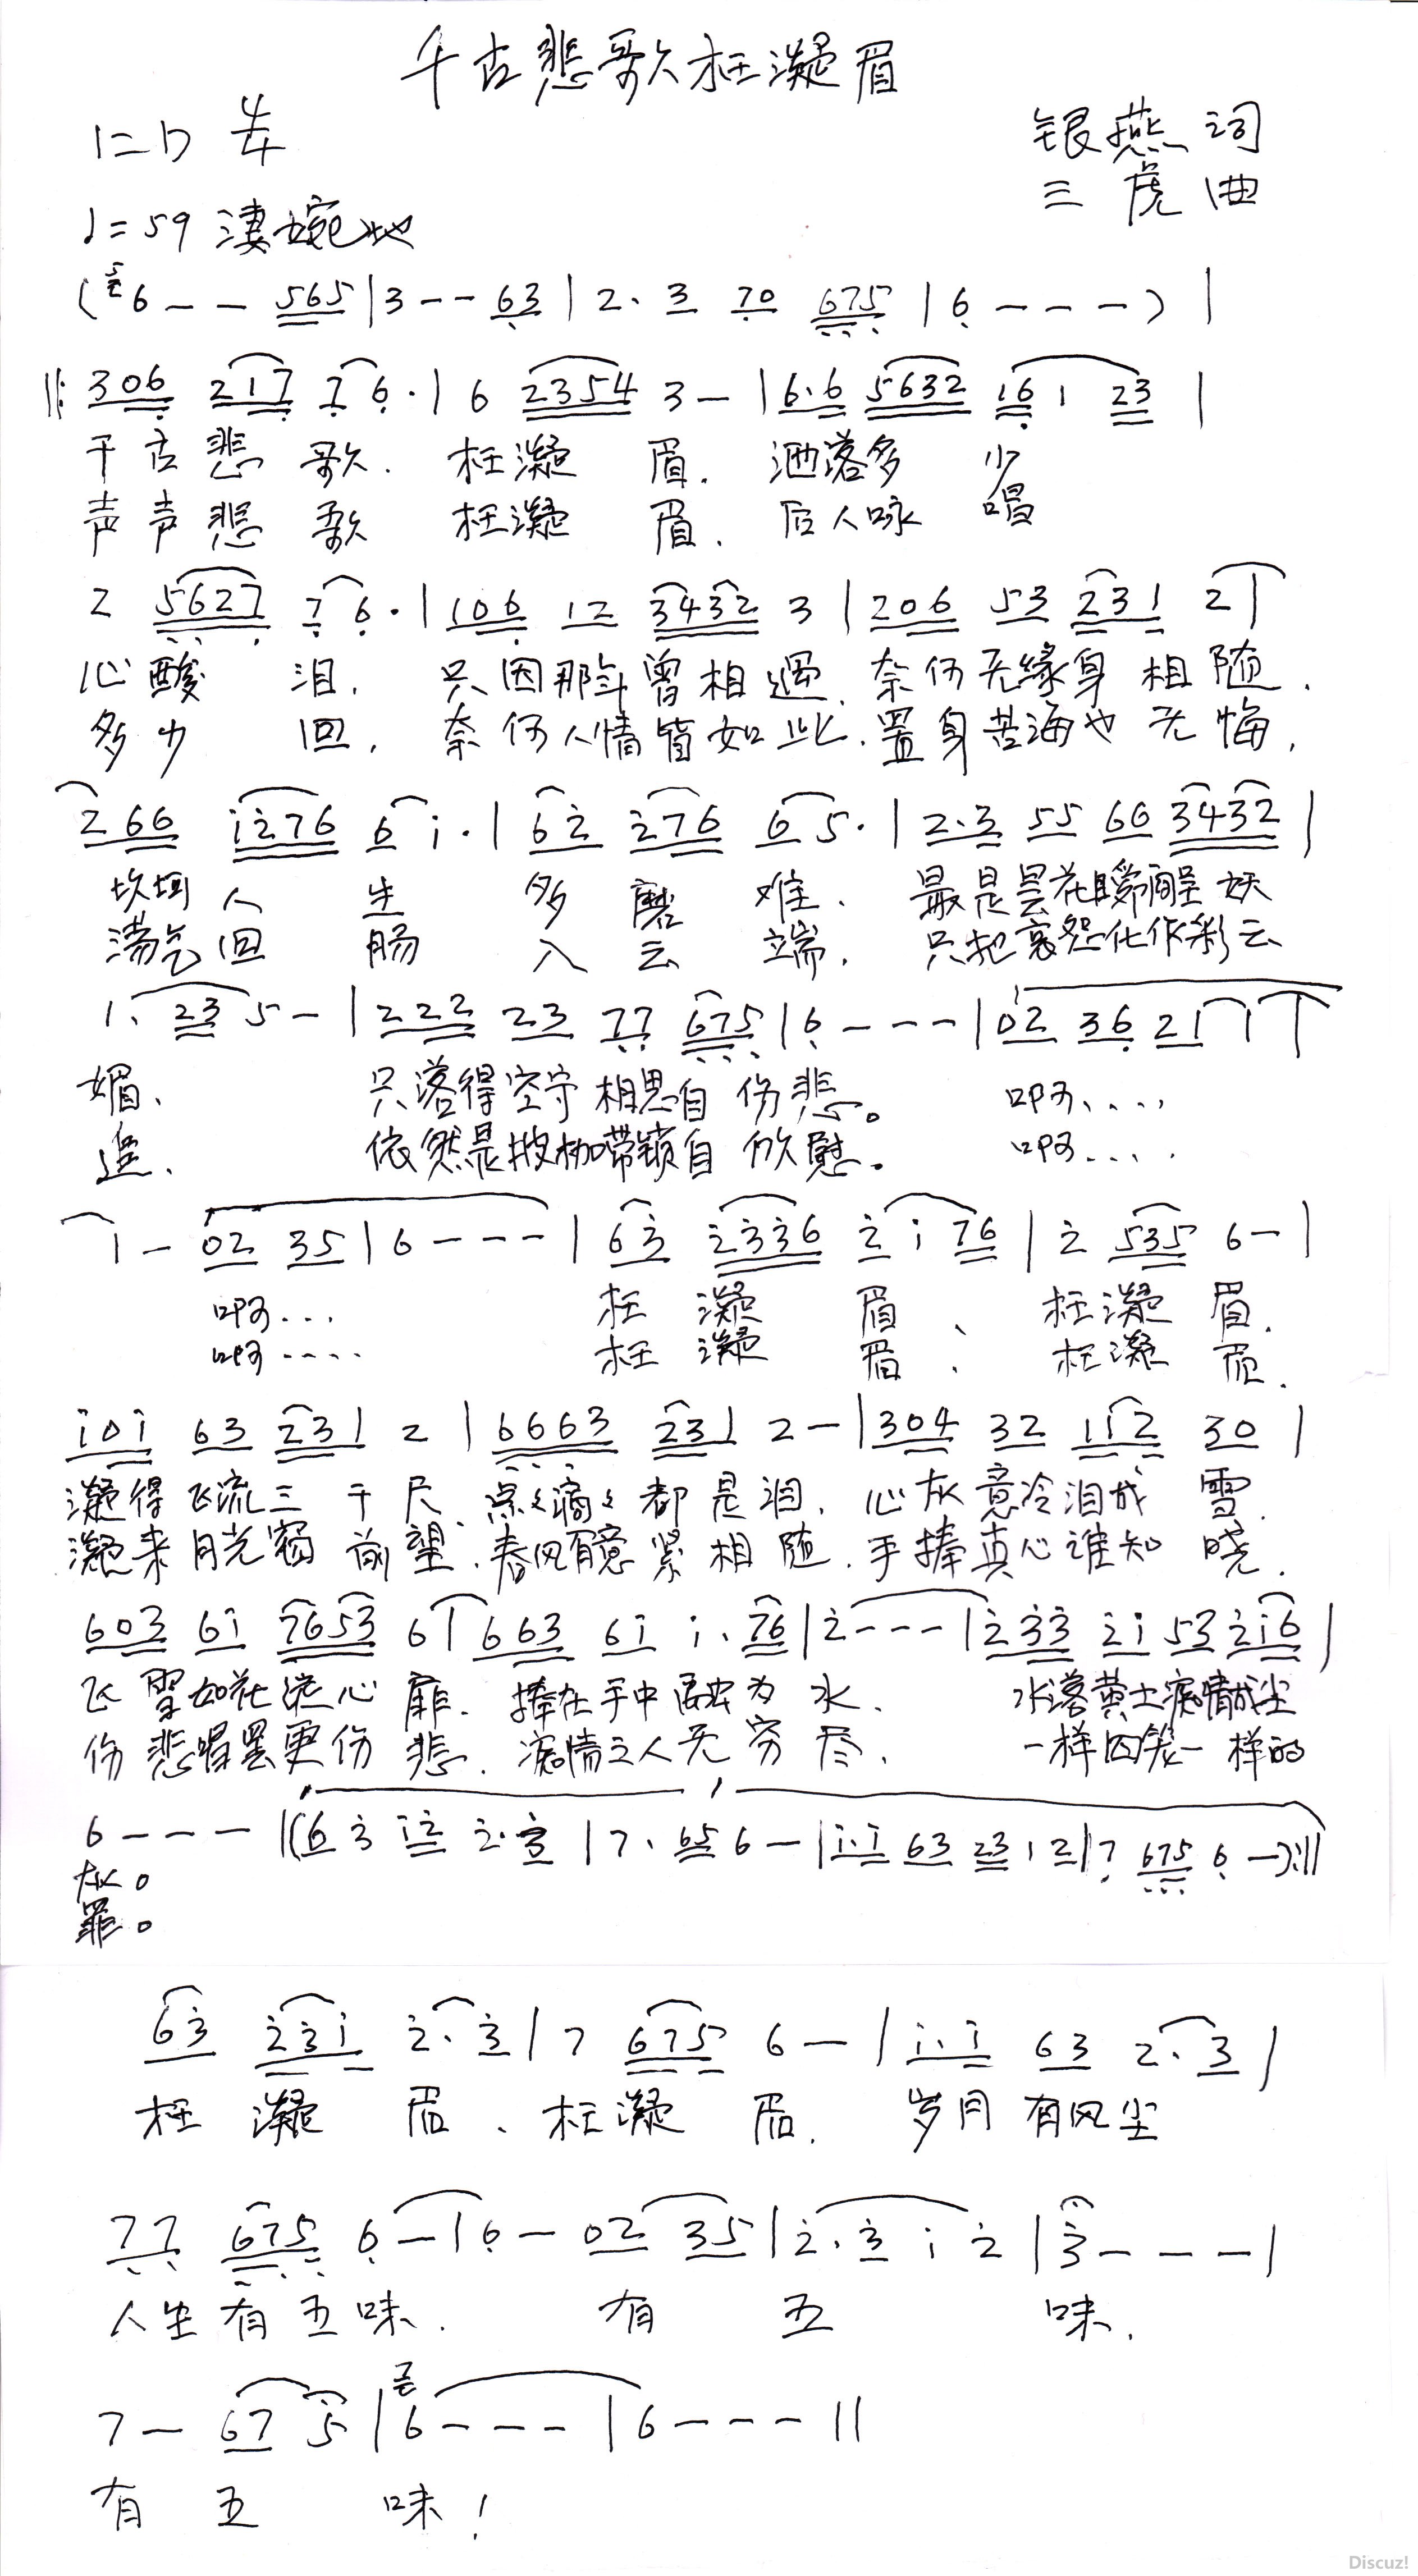 千古悲歌枉凝眉
1=D 4/4 银燕 词
三虎 曲
♩=59 淒婉地
(6 - - 565 | 3 - - 63 | 2· 3 70 675 | 6 - - - ) |
‖: 306 217 76· | 6 2354 3 - | 6·6 5632 16 1 23 |
千古悲歌. 枉凝眉. 洒落多少
声声悲歌 枉凝眉. 后人咏唱
2 5627 76· | 106 12 3432 3 | 206 53 231 2 |
心酸泪. 只因那年曾相遇. 奈何无缘身相随.
多少回. 奈何人情皆如此. 置身苦海也无悔.
266 i276 6i· | 62 276 65· | 2·3 55 66 3432 |
坎坷人生多磨难. 最是昙花瞬间呈妖
荡气回肠入云端. 只把哀怨化作彩云
1· 23 5 - | 222 23 77 675 | 6 - - - | 02 36 21 1 |
媚、 只落得空守相思自伤悲。 啊....
追、 依然是披枷带锁自欣慰。 啊....
i - 02 35 | 6 - - - | 63 2336 2 i 76 | 2 535 6 - |
啊... 枉凝眉、枉凝眉.
啊.... 枉凝眉、枉凝眉.
i0i 63 231 2 | 6663 231 2 - | 304 32 112 30 |
凝得飞流三千尺、点点滴滴都是泪. 心灰意冷泪成雪.
凝来月光窗前望. 春风有意紧相随. 手捧真心谁知晓.
603 6i 7653 6 | 663 6i i· 76 | 2 - - - | 233 2i 53 2i6 |
飞雪如花淀心扉. 捧在手中融为水. 水落黄土痴情成尘
伤悲唱罢更伤悲. 痴情之人无穷尽. 一样回笑一样的
6 - - - | (6 3 i2 2· 3 | 7· 65 6 - | i·i 63 23 1 2 | 7 675 6 - ) :‖
灰。
罪。
63 23i 2· 3 | 7 675 6 - | i·i 63 2· 3 |
枉凝眉、枉凝眉. 岁月有风尘
77 675 6 - | 6 - 02 35 | 2· 3 i 2 | 3 - - - |
人生有五味. 有五味.
7 - 67 5 | 6 - - - | 6 - - - ‖
有五味!
Discuz!